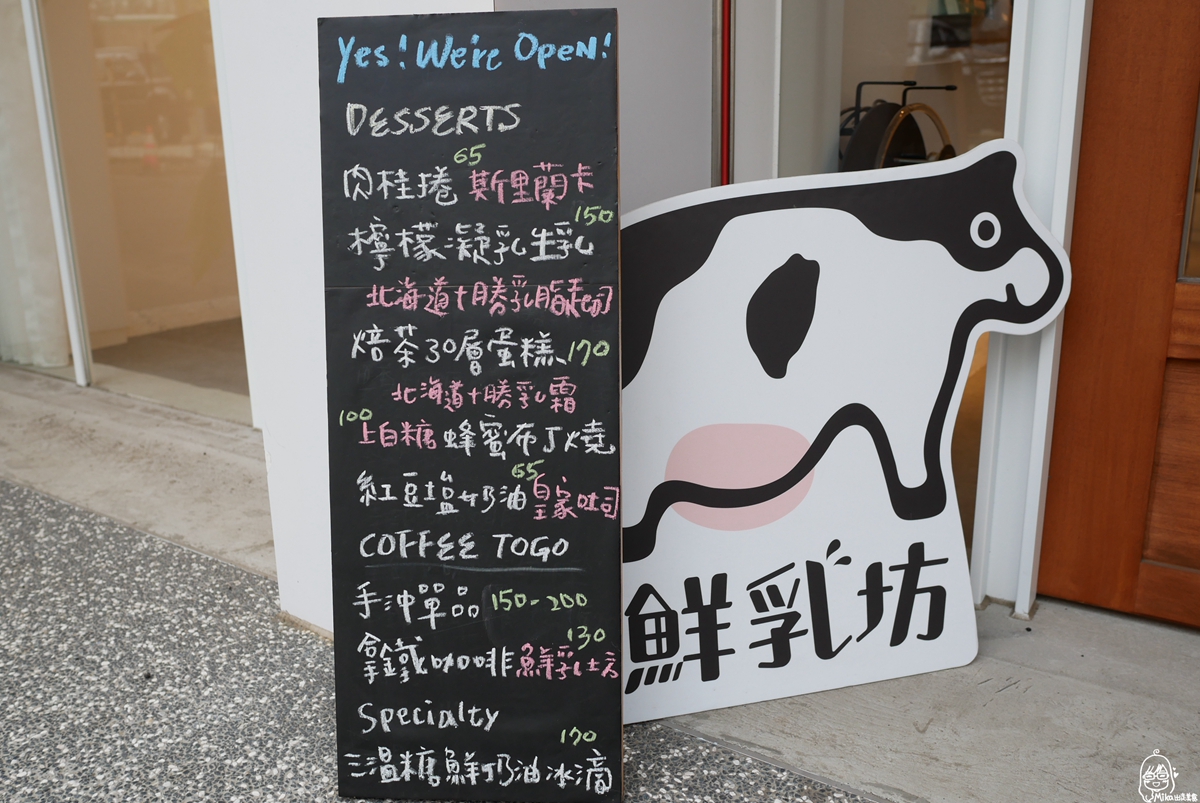 Yes! We're Open!
DESSERTS
65
肉桂捲 斯里蘭卡
150
檸檬凝乳生乳
北海道十勝乳脂起司
焙茶30層蛋糕 170
北海道十勝乳霜
100
上白糖 蜂蜜布丁燒
65
紅豆塩奶油 皇家吐司
COFFEE TOGO
手沖單品 150-200
130
拿鐵咖啡 鮮乳坊
Specialty
170
三温糖鮮奶油冰滴
鮮乳坊
Mika出走美食